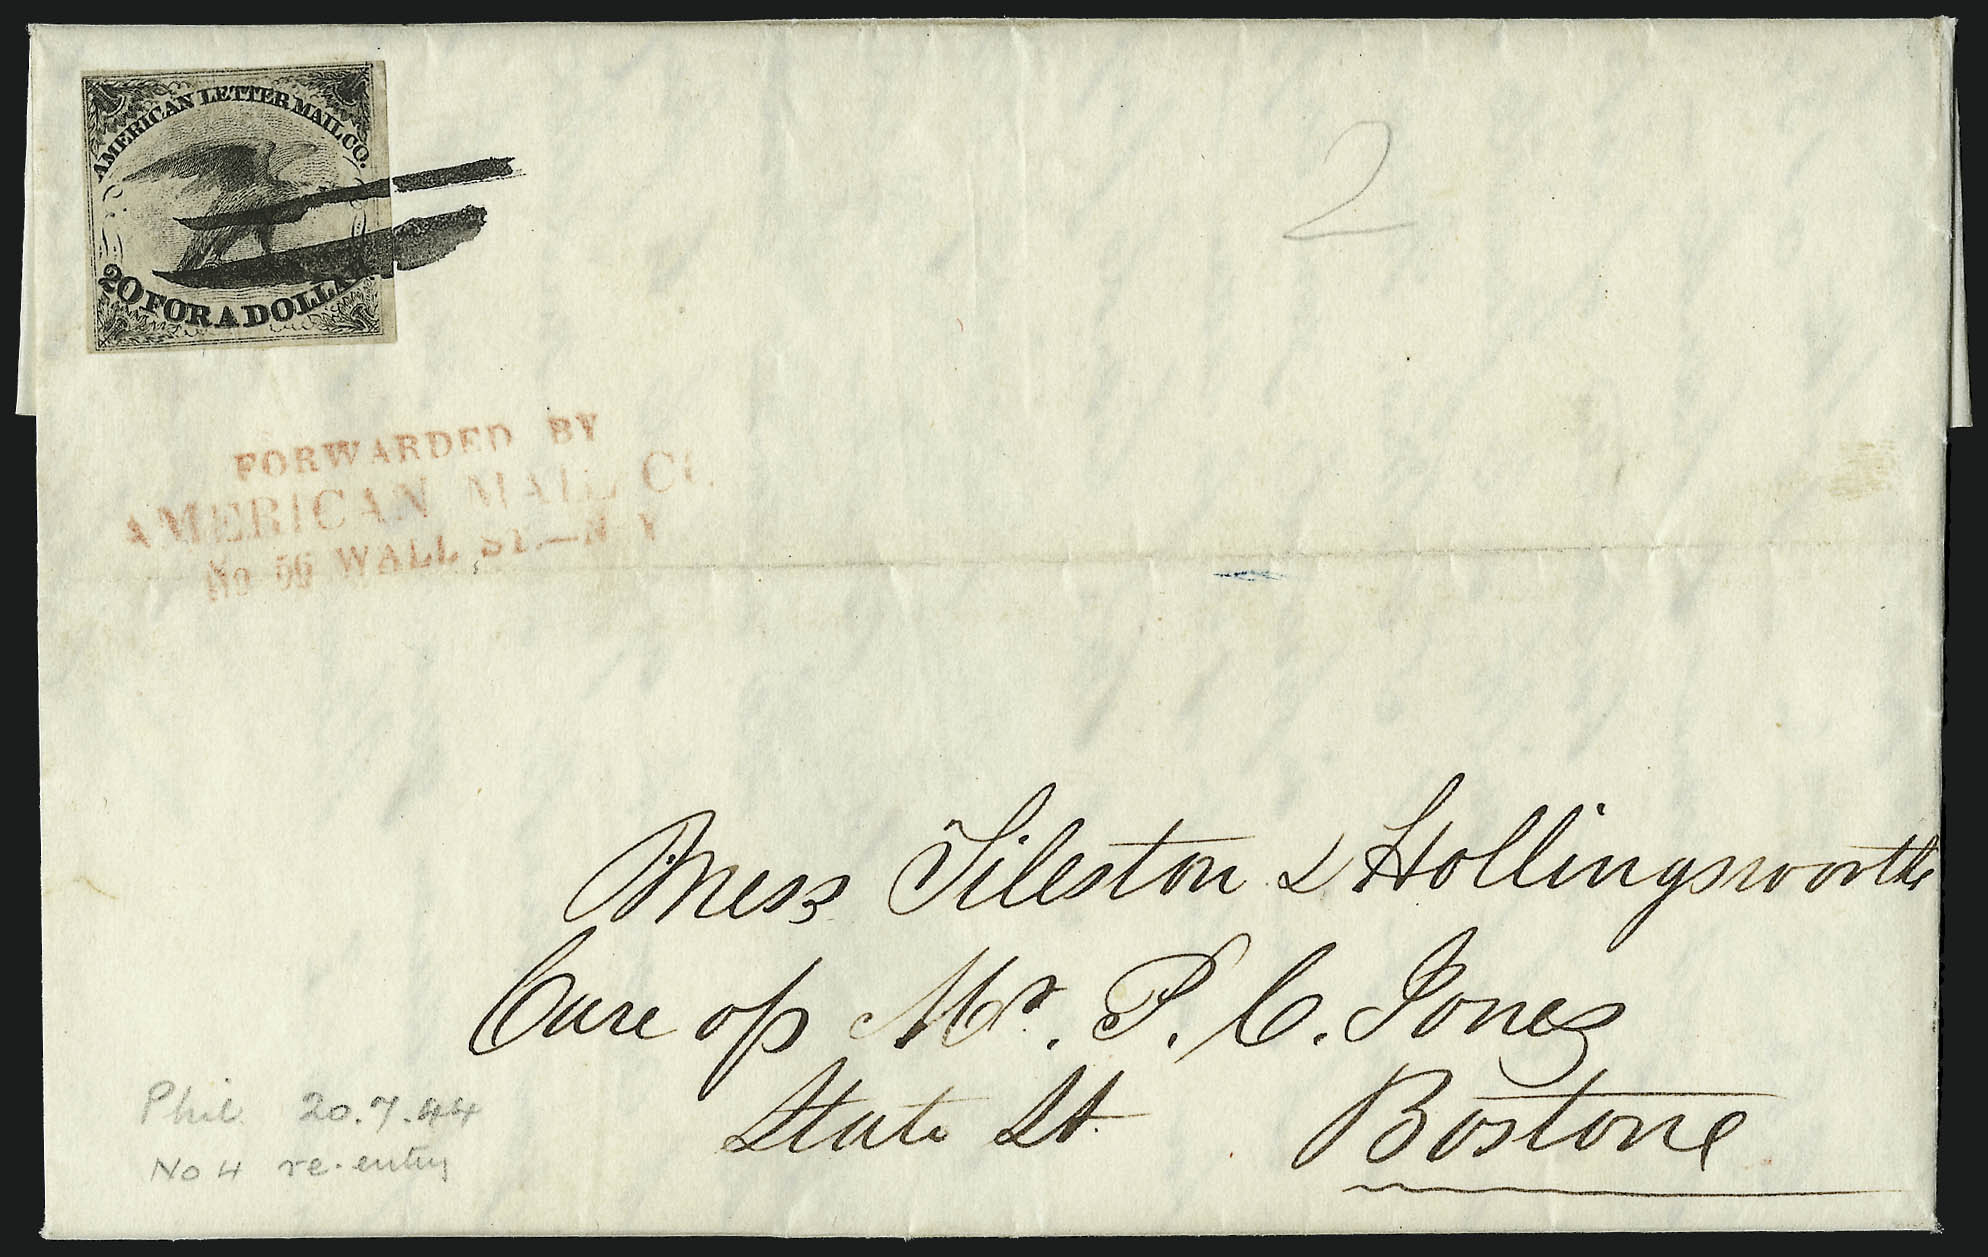 AMERICAN LETTER MAIL CO.
20 FOR A DOLLA
2
FORWARDED BY
AMERICAN MAIL CO
No 56 WALL ST.—N Y
Mess Tileston & Hollingsworth
Care of Mr. P. C. Jones
State St Boston
Phil. 20.7.44
No 4 re-entry